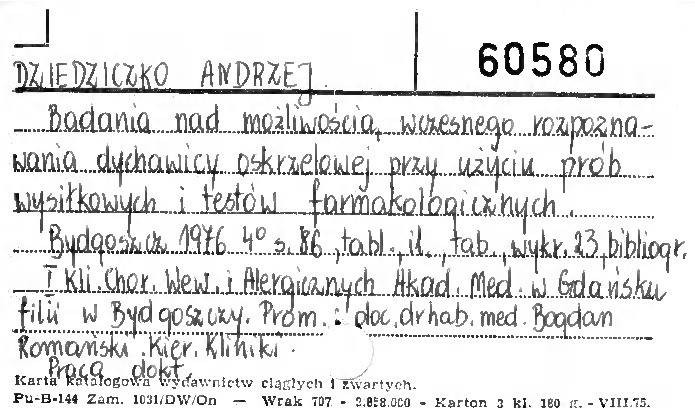 60580
DZIEDZICZKO ANDRZEJ.
Badania nad możliwością wczesnego rozpozna-
wania dychawicy oskrzelowej przy użyciu prób
wysiłkowych i testów farmakologicznych.
Bydgoszcz 1976 4° s. 86, tabl., il., tab., wykr. 23, bibliogr.
I Kli. Chor. Wew. i Alergicznych Akad. Med. w Gdańsku
filii w Bydgoszczy. Prom.: doc. dr hab. med. Bogdan
Romański. Kier. Kliniki.
Praca dokt.
Karta katalogowa wydawnictw ciągłych i zwartych.
Pu-B-144 Zam. 1031/DW/On — Wrak 707 - 2.858.000 - Karton 3 kl. 180 g. - VIII.75.